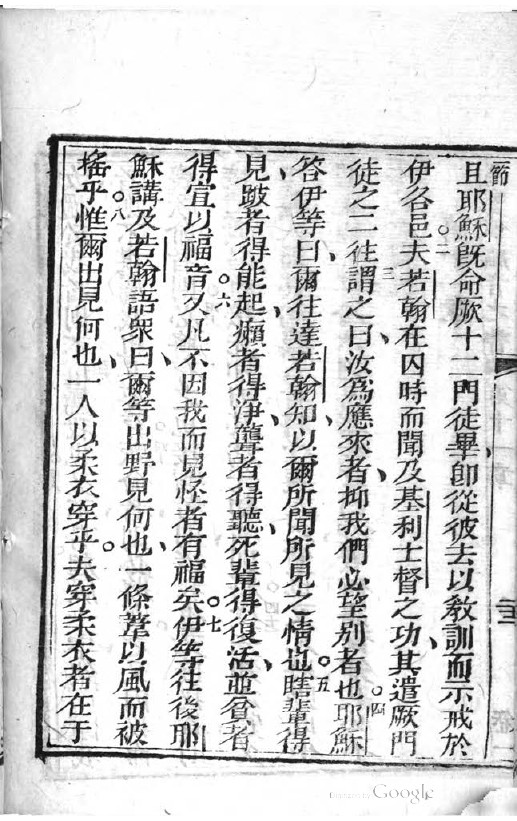 節
且耶穌既命厥十二門徒畢、即從彼去以教訓而示戒於
伊各邑。二夫若翰在囚時而聞及基利士督之功、其遣厥門
徒之二往三謂之曰、汝為應來者、抑我們必望別者也。四耶穌
答伊等曰、爾往達若翰知、以爾所聞所見之情也。五瞎輩得
見、跛者得能起、癩者得淨、聾者得聽、死輩得復活、並貧者
得宣以福音。六又凡不因我而見怪者有福矣。七伊等往後耶
穌講及若翰語眾曰、爾等出野見何也、一條葦以風而被
搖乎。八惟爾出見何也、一人以柔衣穿乎。夫穿柔衣者在于
Digitized by Google